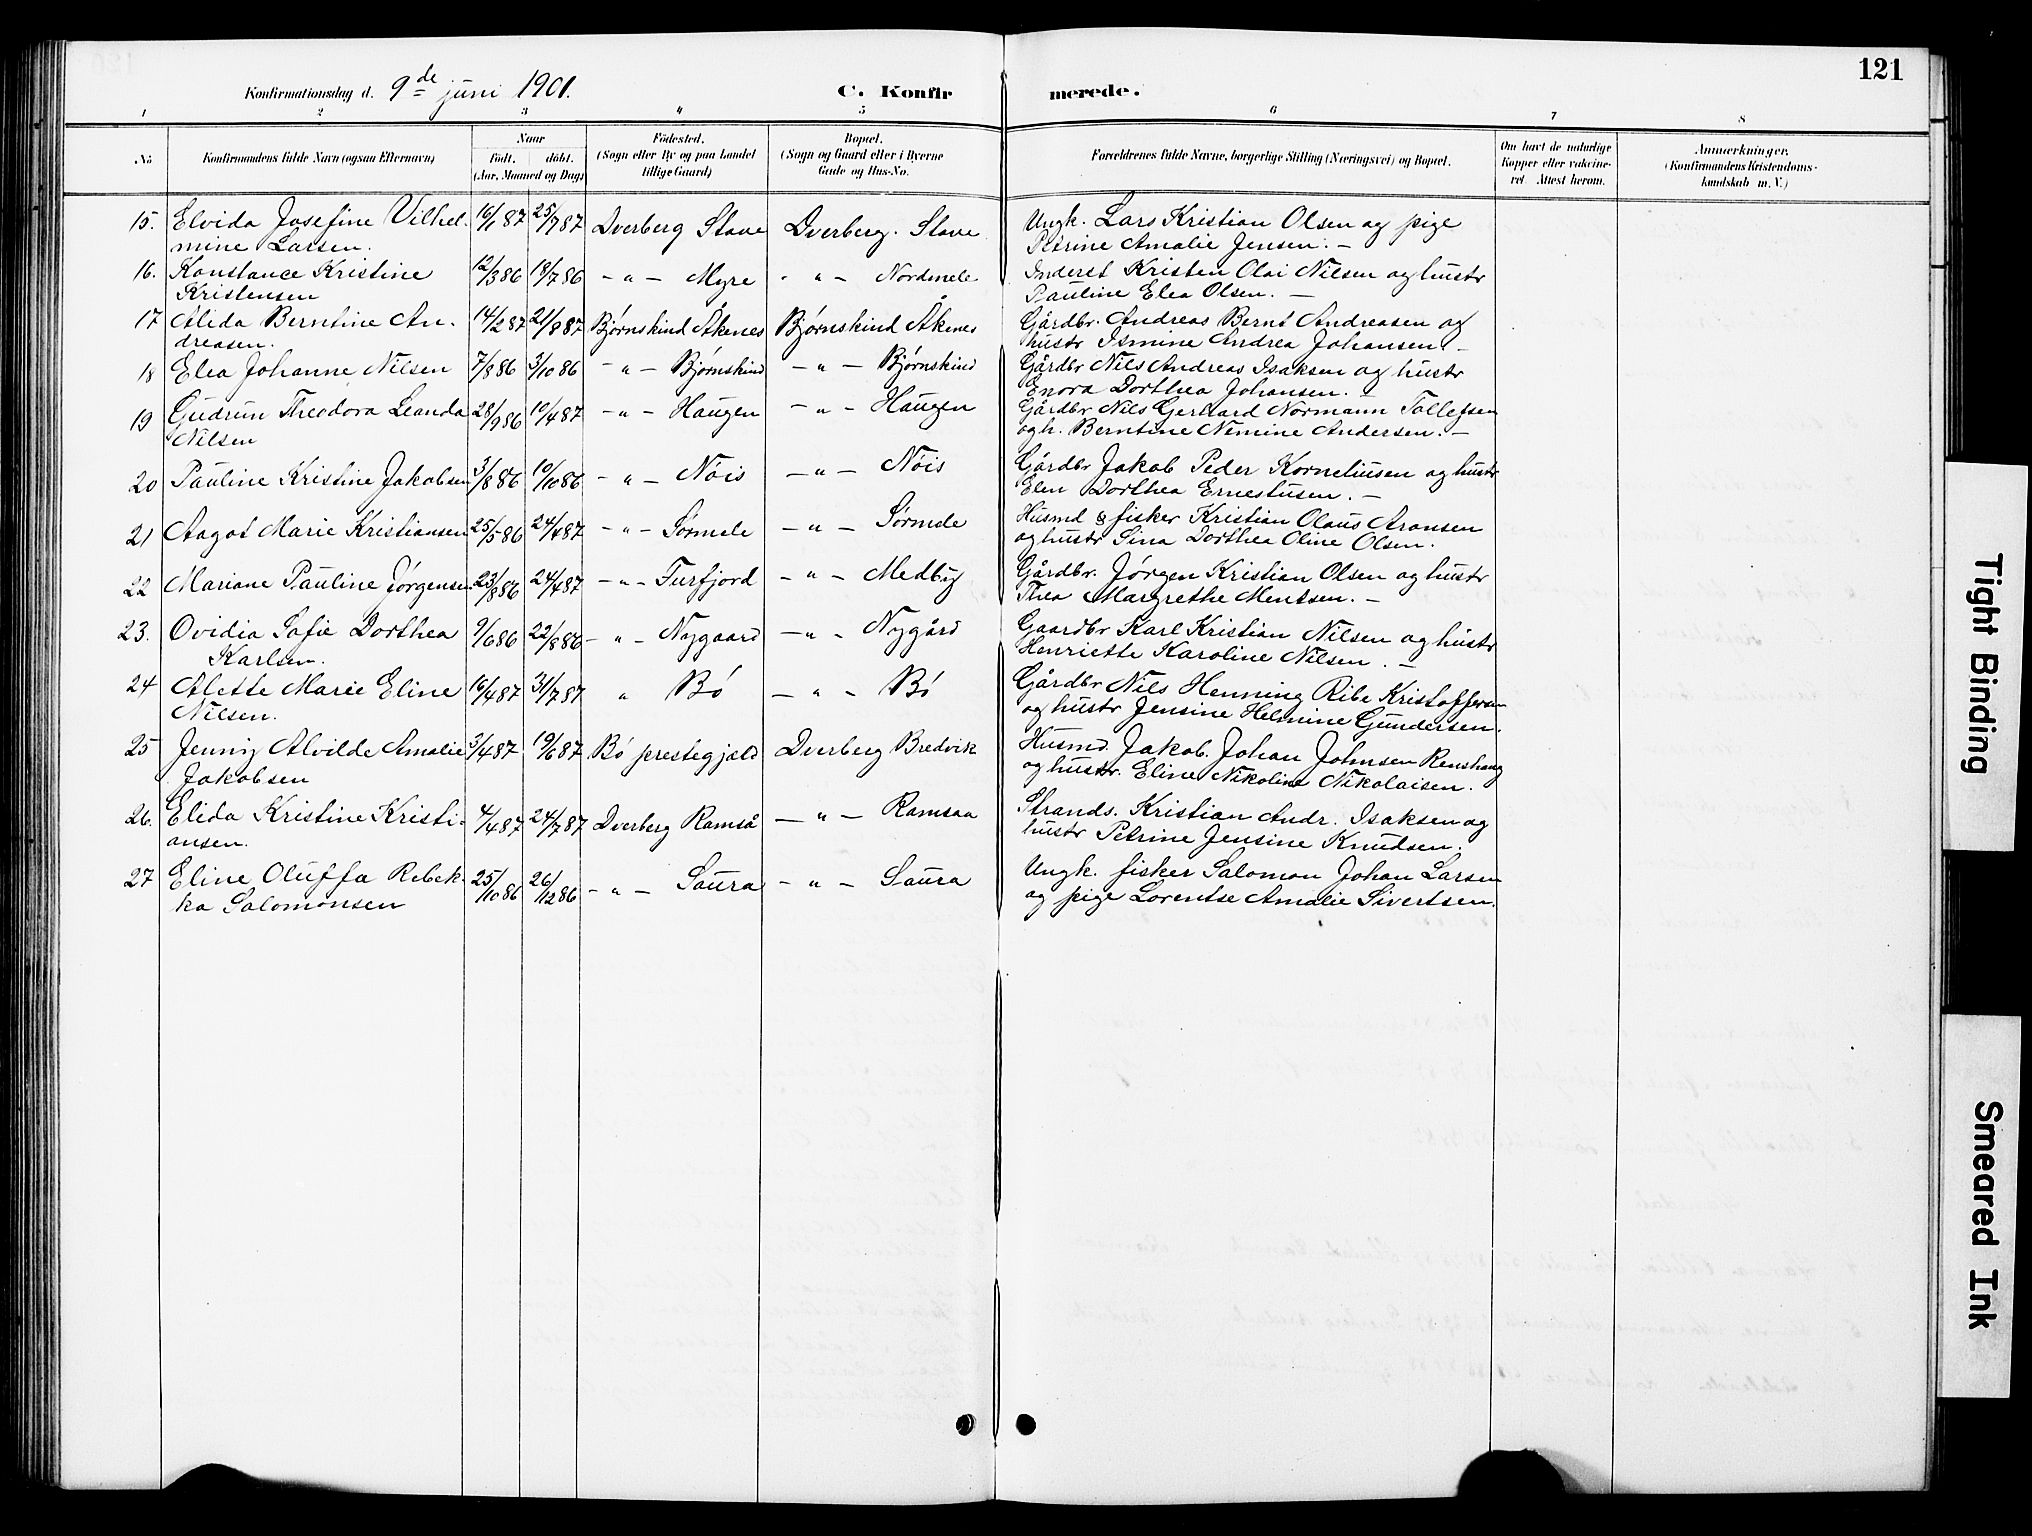 121
Konfirmationsdag d. 9de juni 1901. C. Konfirmerede.
1 2 3 4 5 6 7 8
No Konfirmandens fulde Navn (ogsaa Efternavn) Naar Født. døbt. (Aar, Maaned og Dag) Fødested. (Sogn eller By og paa Landet tillige Gaard) Bopæl. (Sogn og Gaard eller i Byerne Gade og Hus-No. Forældrenes fulde Navne, borgerlige Stilling (Næringsvei) og Bopæl. Om havt de naturlige Kopper eller vaccineret. Attest herom. Anmærkninger. (Konfirmandens Kristendomskundskab m. V.)
15. Elvida Josefine Vilhel- 16/1 87 25/7 87 Dverberg Stave Dverberg. Stave Ungk. Lars Kristian Olsen og pige
mine Larsen. Petrine Amalie Jensen. —
16. Konstance Kristine 12/3 86 18/7 86 — " — Myre - " — Nordmele Inderst Kristen Olai Nilsen og hustr
Kristensen Pauline Elea Olsen. —
17 Alida Berntine An- 14/2 87 21/8 87 Bjørnskind Åkenes Bjørnskind Åkenes Gårdbr. Andreas Bernt Andreasen og
dreasen. hustr Ismine Andrea Johansen. —
18 Elea Johanne Nilsen 7/8 86 3/10 86 — " — Bjørnskind — " — Bjørnskind Gårdbr Nils Andreas Isaksen og hustr
Enora Dorthea Johansen. —
19 Gudrun Theodora Leanda 28/9 86 10/4 87 — " — Haugen — " — Haugen Gårdbr Nils Gerhard Normann Tollefsen
Nilsen og h. Berntine Nemine Andersen. —
20 Pauline Kristine Jakobsen 3/8 86 10/10 86 — " — Nöis — " — Nöis Gårdbr Jakob Peder Korneliusen og hustr
Elen Dorthea Ernestusen. —
21 Aagot Marie Kristiansen 25/5 86 24/4 87 — " — Sørmele — " — Sørmele Husmd & fisker Kristian Olaus Aronsen
og hustr Sina Dorthea Oline Olsen.
22 Mariane Pauline Jørgensen 23/8 86 24/4 87 — " — Furfjord — " — Medby Gårdbr. Jørgen Kristian Olsen og hustr
Thea Margrethe Mentsen. —
23. Ovidia Sofie Dorthea 9/6 86 22/8 86 — " — Nygaard — " — Nygård Gaardbr Karl Kristian Nilsen og hustr
Karlsen. Henriette Karoline Nilsen. —
24 Alette Marie Eline 16/4 87 31/7 87 " Bö — " — Bö Gårdbr Nils Henning Ribe Kristoffersen
Nilsen. og hustr Jensine Helmine Gundersen.
25 Jenny Alvilde Amalie 3/4 87 19/6 87 Bö prestegjeld Dverberg Bredvik Husmd. Jakob. Johan Johnsen Renshaug
Jakobsen og hustr. Eline Nikoline Nikolaisen.
26. Elida Kristine Kristi- 4/4 87 24/7 87 Dverberg Ramså — " — Ramsaa Strands. Kristian Andr. Isaksen og
ansen. hustr Petrine Jensine Knudsen.
27 Eline Oluffa Rebek- 25/10 86 26/12 86 — " — Saura — " — Saura Ungk. fisker Salomon Johan Larsen
ka Salomonsen og pige Lorentse Amalie Sivertsen.
Tight Binding
Smeared Ink